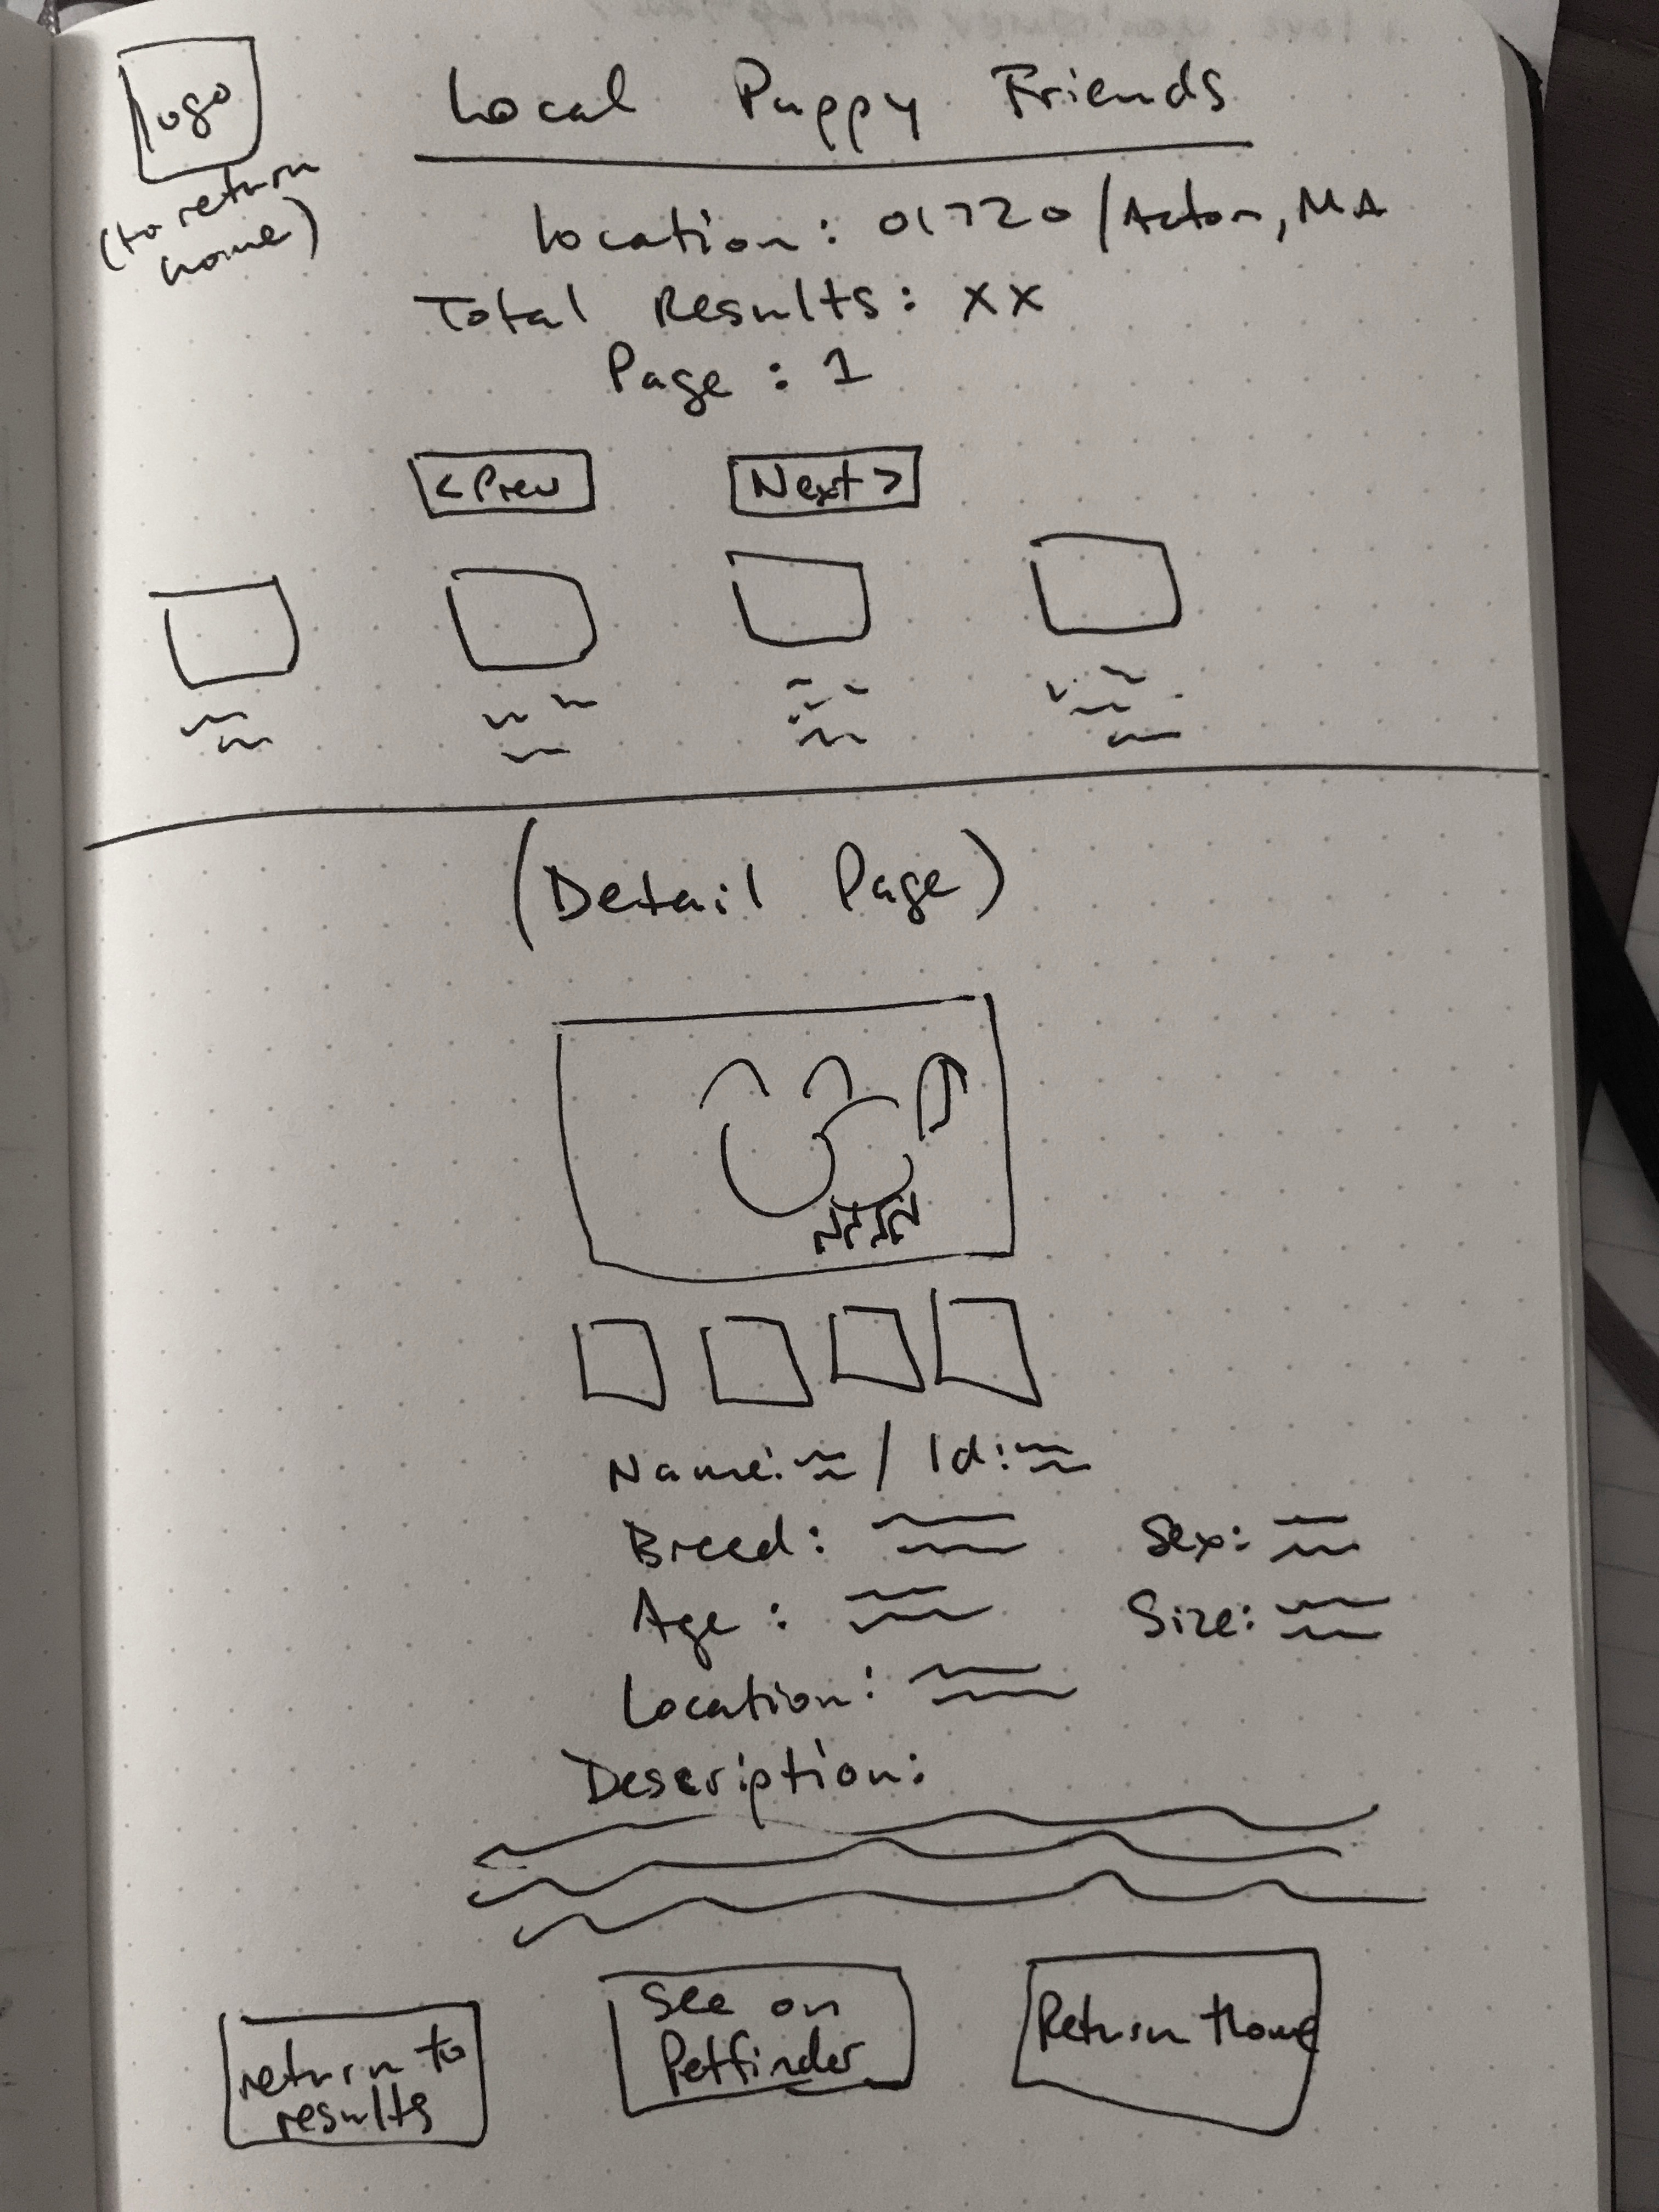 Logo
(to return
home)
Local Puppy Friends
Location: 01720/Acton, MA
Total Results: xx
Page: 1
<Prev
Next>
(Detail Page)
Name: / Id:
Breed: Sex:
Age: Size:
Location:
Description:
return to
results
See on
Petfinder
Return Home